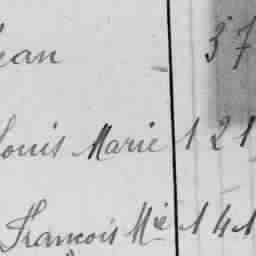 ean 37
Louis Marie 121
François Mie 141